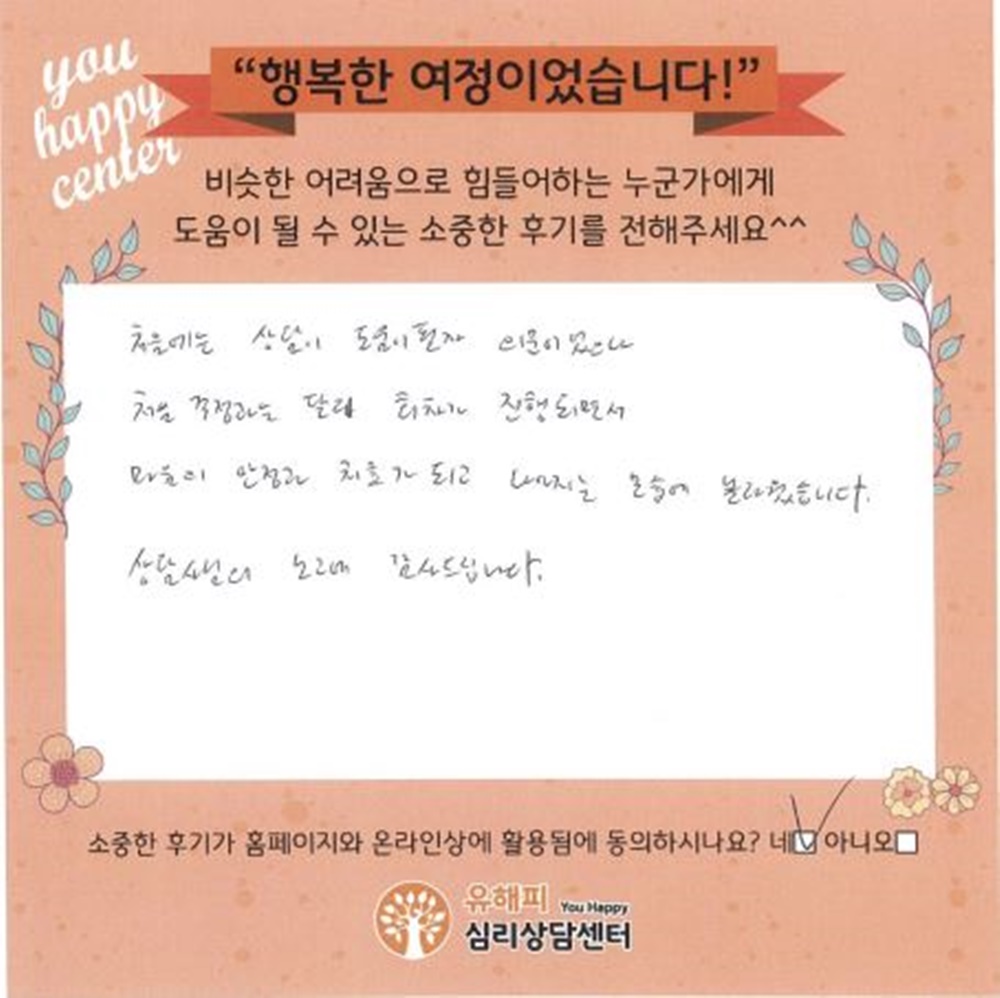 you
happy
center
“행복한 여정이었습니다!”
비슷한 어려움으로 힘들어하는 누군가에게
도움이 될 수 있는 소중한 후기를 전해주세요^^
처음에는 상담이 도움이 될지 의문이 있으나
처음 걱정과는 달리 회차가 진행되면서
마음의 안정과 치료가 되고 나아지는 모습에 놀라웠습니다.
상담사님의 노고에 감사드립니다.
소중한 후기가 홈페이지와 온라인상에 활용됨에 동의하시나요? 네 아니오
유해피 You Happy
심리상담센터